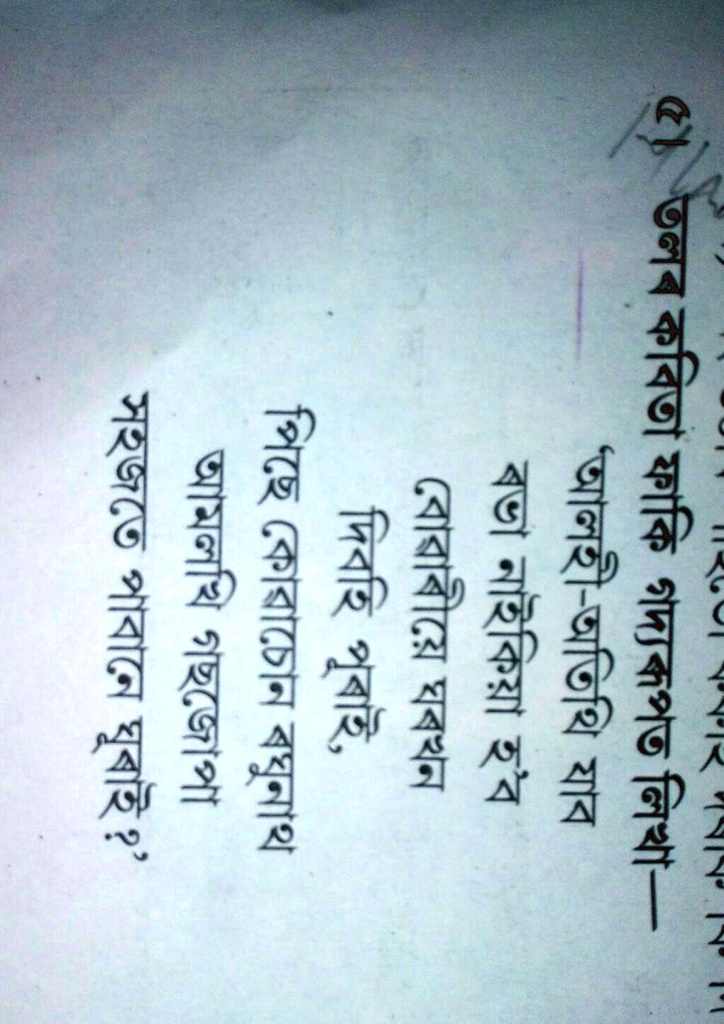 ৫। তলৰ কবিতা ফাকি গদ্যৰূপত লিখা—
‘আলহী-অতিথি যাব
বতা নাইকিয়া হ’ব
বোৱাৰীয়ে ঘৰখন
দিবহি পুৱাই,
পিছে কোৱাচোন ৰঘুনাথ
আমলখি গছজোপা
সহজতে পাৰানে ঘূৰাই?’